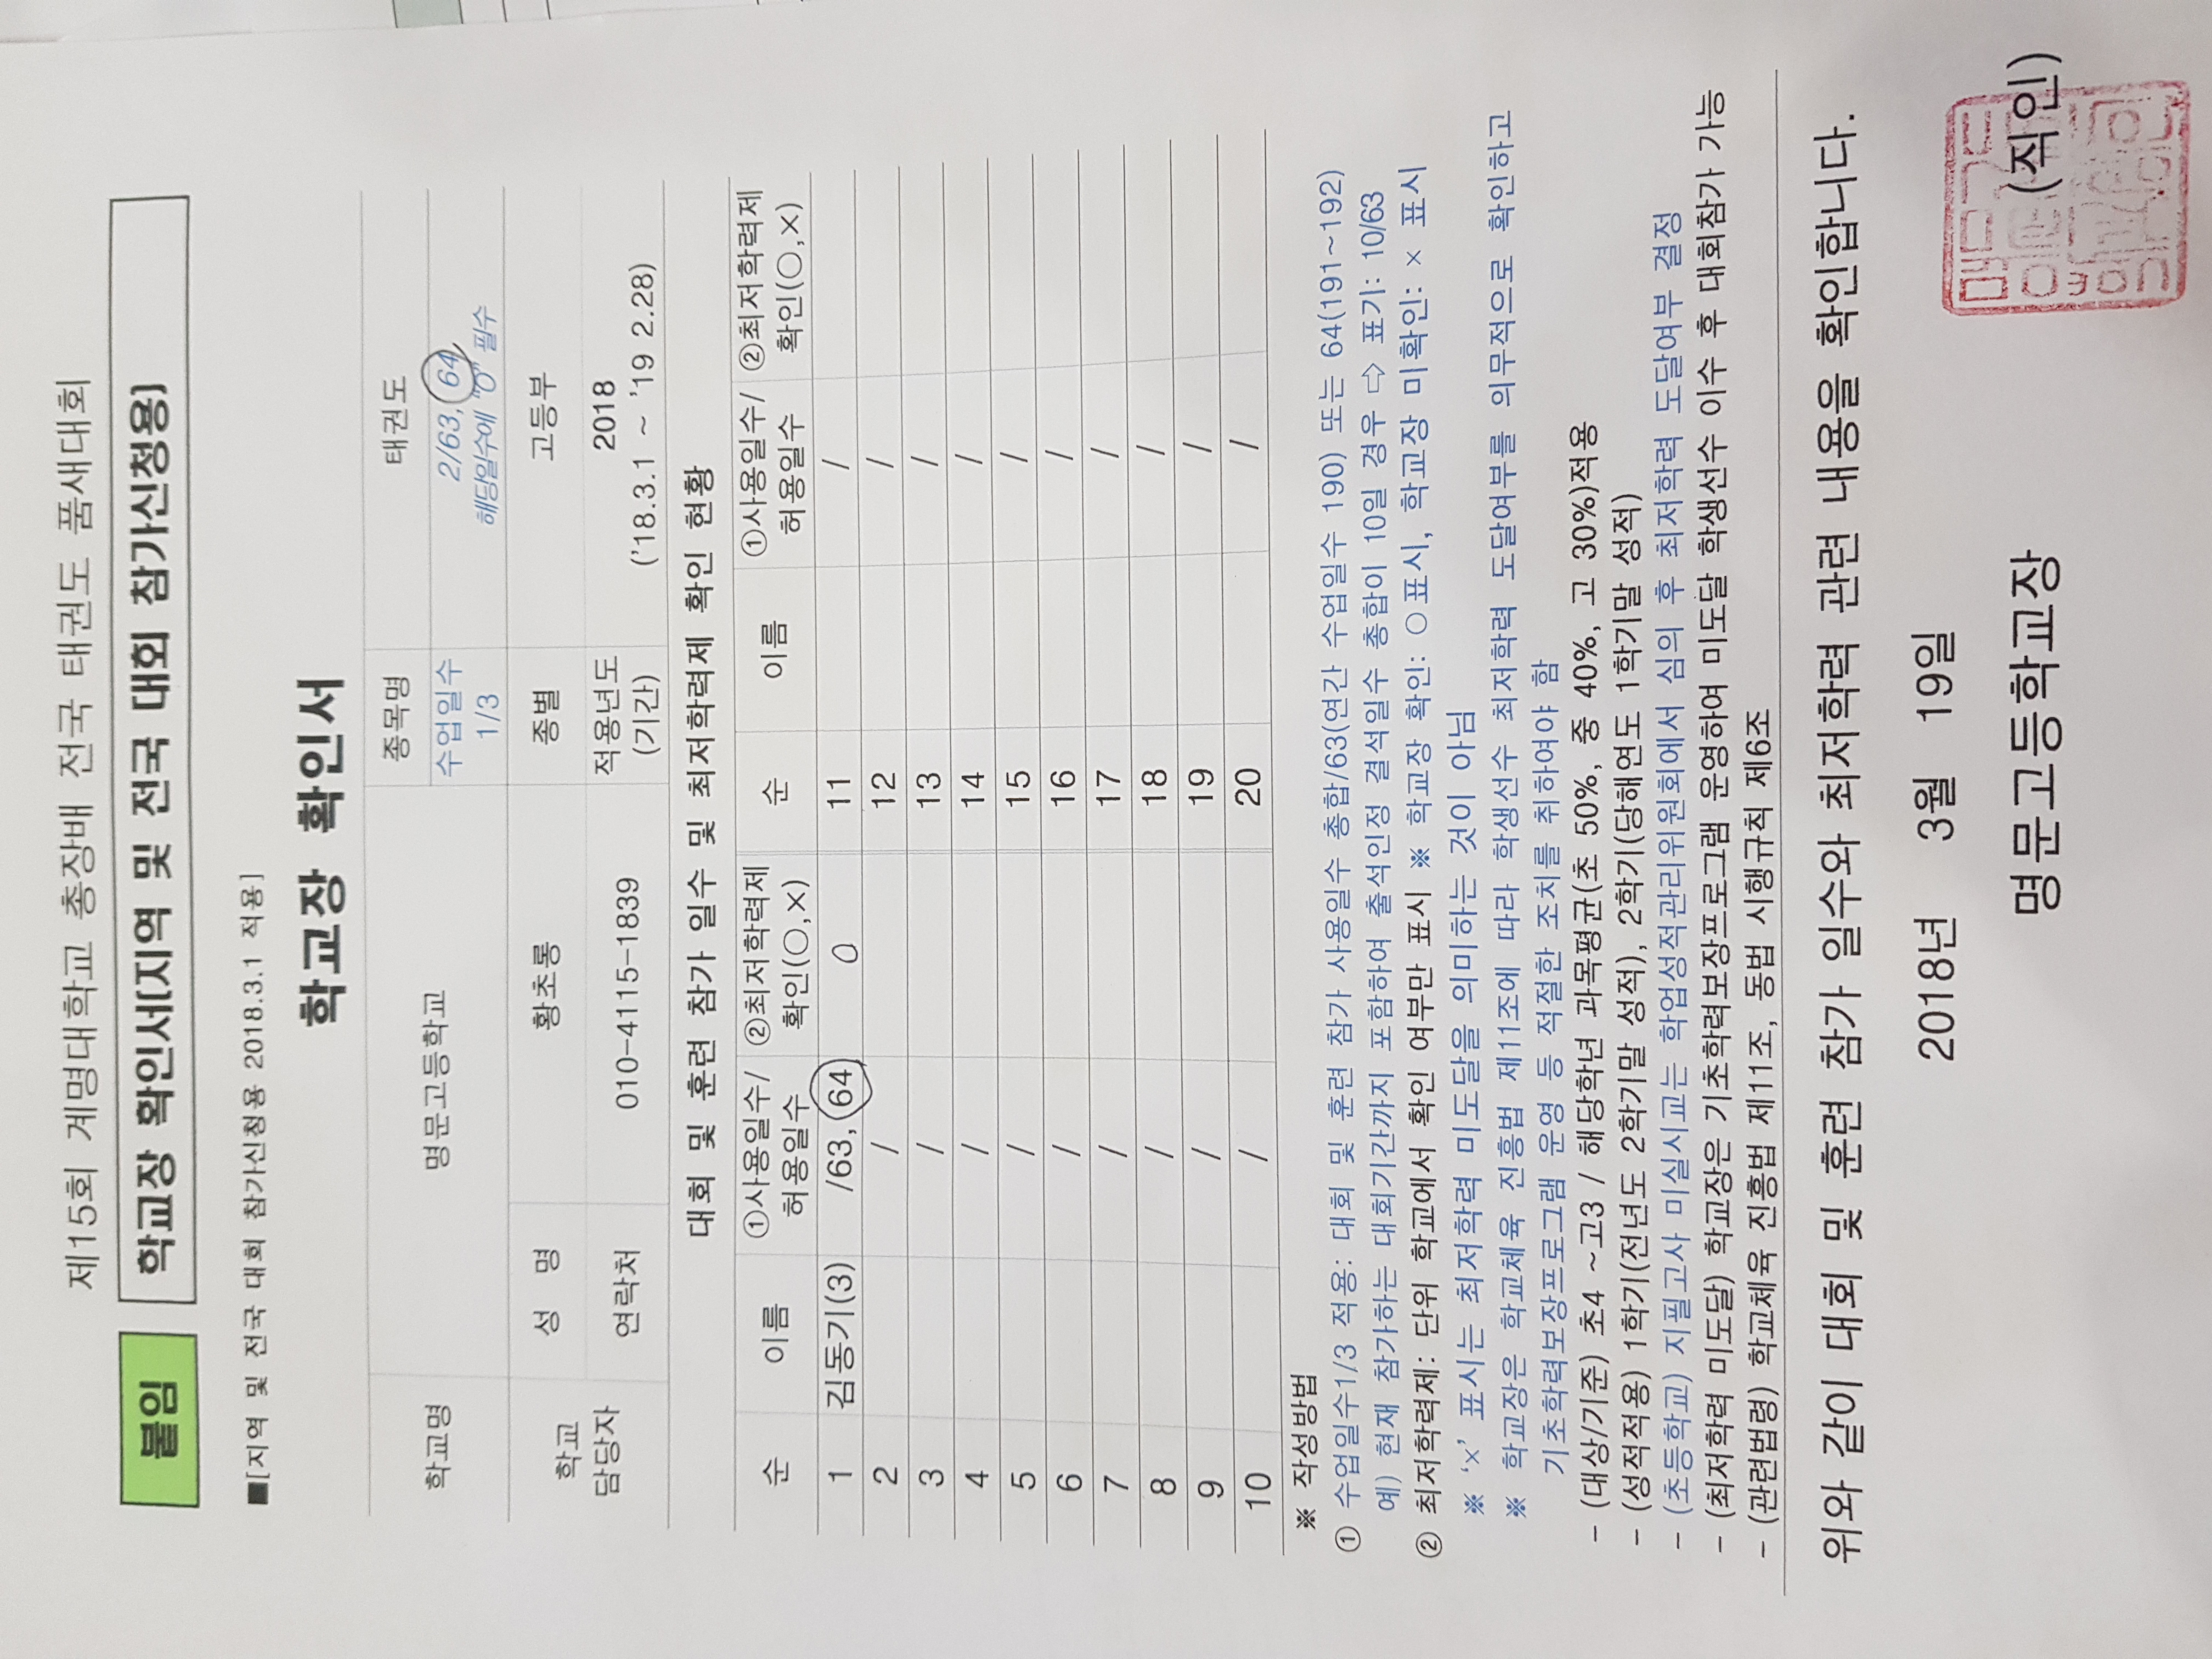 제15회 계명대학교 총장배 전국 태권도 품새대회
붙임 학교장 확인서(지역 및 전국 대회 참가신청용)
■[지역 및 전국 대회 참가신청용 2018.3.1 적용]
학교장 확인서
학교명 명문고등학교 종목명 태권도
수업일수 1/3 2/63, 64
해당일수에 "O" 필수
학교 담당자 성 명 황초롱 종별 고등부
연락처 010-4115-1839 적용년도 (기간) 2018
('18.3.1 ~ '19 2.28)
대회 및 훈련 참가 일수 및 최저학력제 확인 현황
순 이름 ①사용일수/허용일수 ②최저학력제 확인(○,×) 순 이름 ①사용일수/허용일수 ②최저학력제 확인(○,×)
1 김동기(3) /63, 64 O 11 /
2 / 12 /
3 / 13 /
4 / 14 /
5 / 15 /
6 / 16 /
7 / 17 /
8 / 18 /
9 / 19 /
10 / 20 /
※ 작성방법
① 수업일수1/3 적용: 대회 및 훈련 참가 사용일수 총합/63(연간 수업일수 190) 또는 64(191~192)
예) 현재 참가하는 대회기간까지 포함하여 출석인정 결석일수 총합이 10일 경우 ⇨ 표기: 10/63
② 최저학력제: 단위 학교에서 확인 여부만 표시 ※ 학교장 확인: ○표시, 학교장 미확인: × 표시
※ '×' 표시는 최저학력 미도달을 의미하는 것이 아님
※ 학교장은 학교체육 진흥법 제11조에 따라 학생선수 최저학력 도달여부를 의무적으로 확인하고
기초학력보장프로그램 운영 등 적절한 조치를 취하여야 함
- (대상/기준) 초4 ~고3 / 해당학년 과목평균(초 50%, 중 40%, 고 30%)적용
- (성적적용) 1학기(전년도 2학기말 성적), 2학기(당해연도 1학기말 성적)
- (초등학교) 지필고사 미실시교는 학업성적관리위원회에서 심의 후 최저학력 도달여부 결정
- (최저학력 미도달) 학교장은 기초학력보장프로그램 운영하여 미도달 학생선수 이수 후 대회참가 가능
- (관련법령) 학교체육 진흥법 제11조, 동법 시행규칙 제6조
위와 같이 대회 및 훈련 참가 일수와 최저학력 관련 내용을 확인합니다.
2018년 3월 19일
명문고등학교장 (직인)